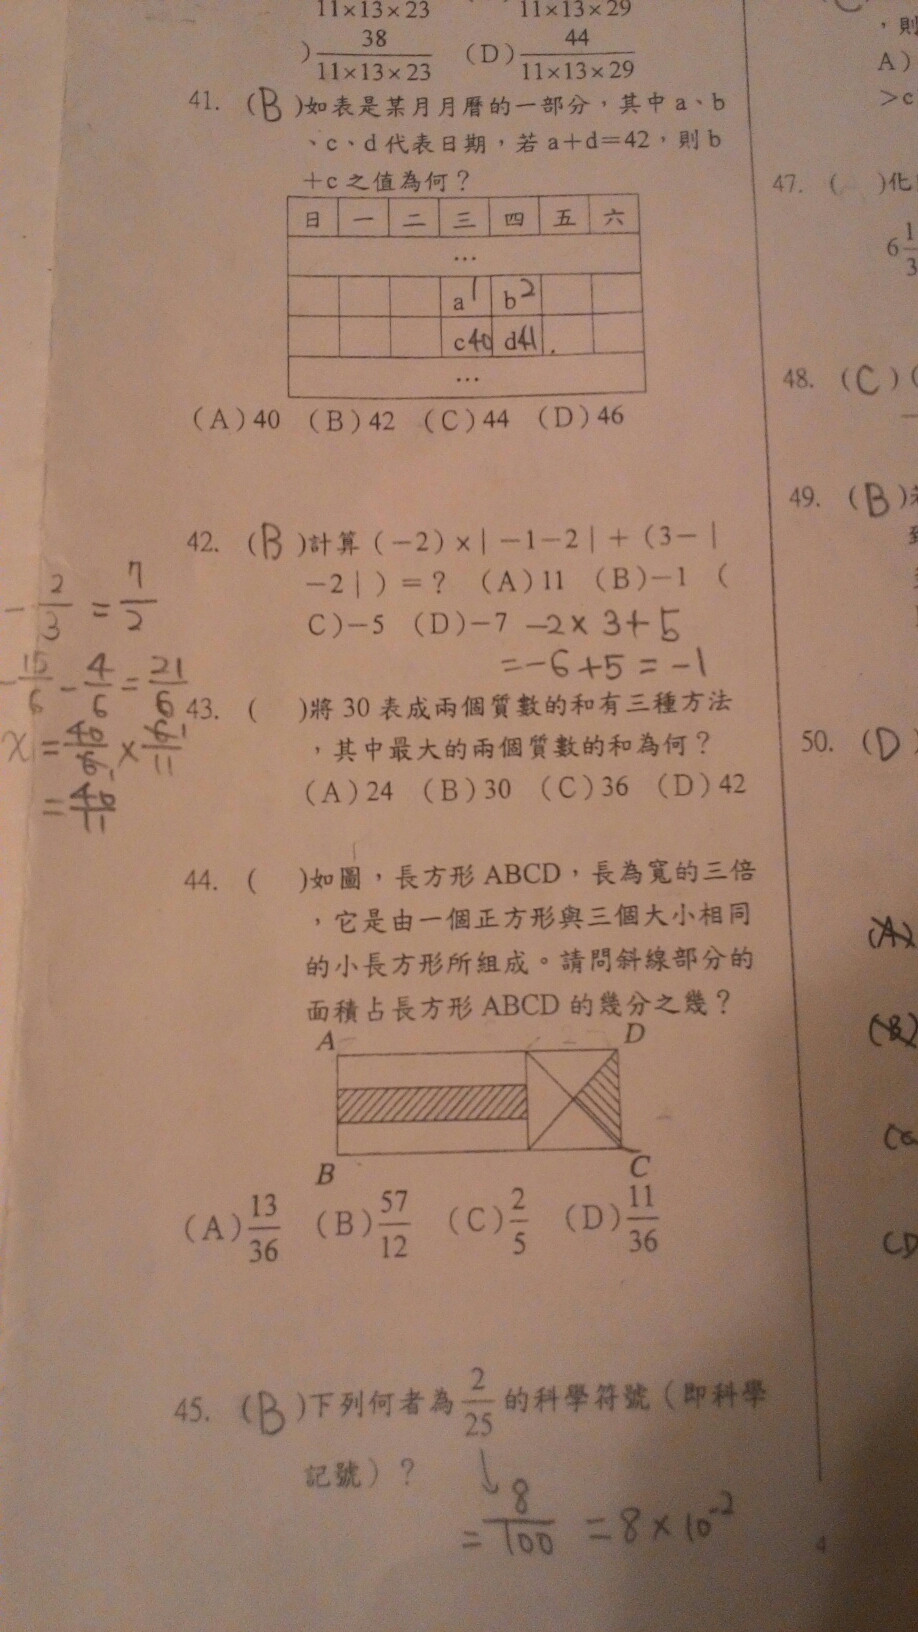 11×13×23
11×13×29
)38/11×13×23 (D)44/11×13×29
41. (B)如表是某月月曆的一部分，其中a、b
、c、d代表日期，若a+d=42，則b
+c之值為何？
日 一 二 三 四 五 六
…
a1 b2
c40 d41
…
(A)40 (B)42 (C)44 (D)46
42. (B)計算(-2)×|-1-2|+(3-|
-2|)=? (A)11 (B)-1 (
C)-5 (D)-7 -2×3+5
=-6+5=-1
-2/3=7/2
-15/6-4/6=21/6
x=40/6×6/11
=40/11
43. ( )將30表成兩個質數的和有三種方法
，其中最大的兩個質數的和為何？
(A)24 (B)30 (C)36 (D)42
44. ( )如圖，長方形ABCD，長為寬的三倍
，它是由一個正方形與三個大小相同
的小長方形所組成。請問斜線部分的
面積占長方形ABCD的幾分之幾？
A D
B C
(A)13/36 (B)57/12 (C)2/5 (D)11/36
45. (B)下列何者為2/25的科學符號（即科學
記號）？
=8/100=8×10^-2
，則
A)
>c
47. ( )化
6 1/3
48. (C)(
49. (B)若
50. (D)
(A)
(B)
(C
(D
4